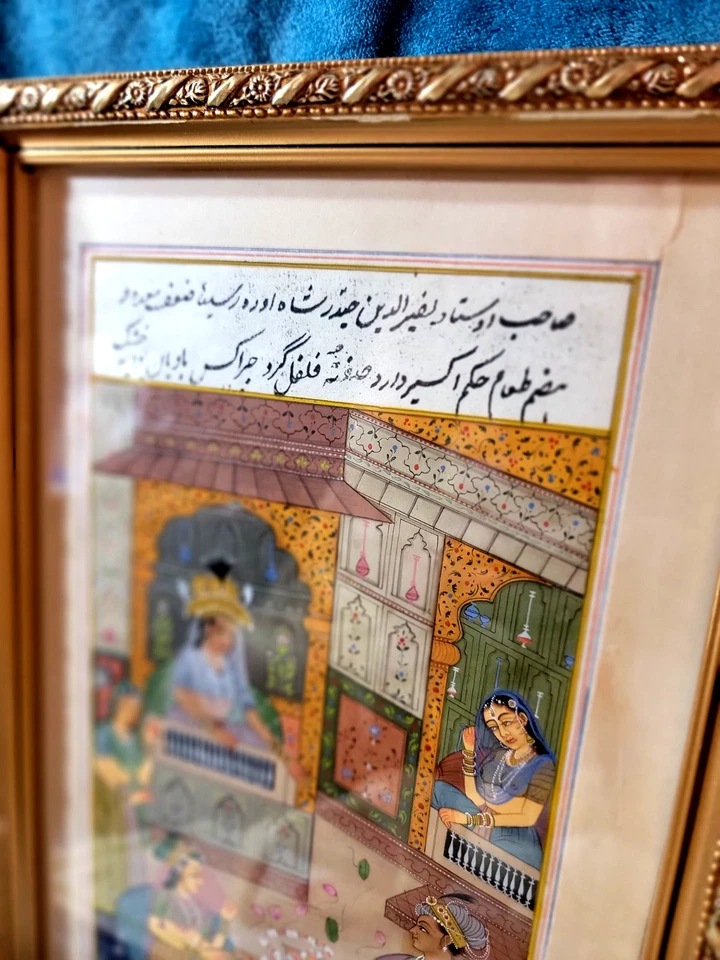 صاحب اوستاد بضیر الدین حیدر شاه اوده رسید تا ضعف معده و
هضم طعام حکم اکسیر دارد صفته فلفل گرد جراکس بادیان خشک